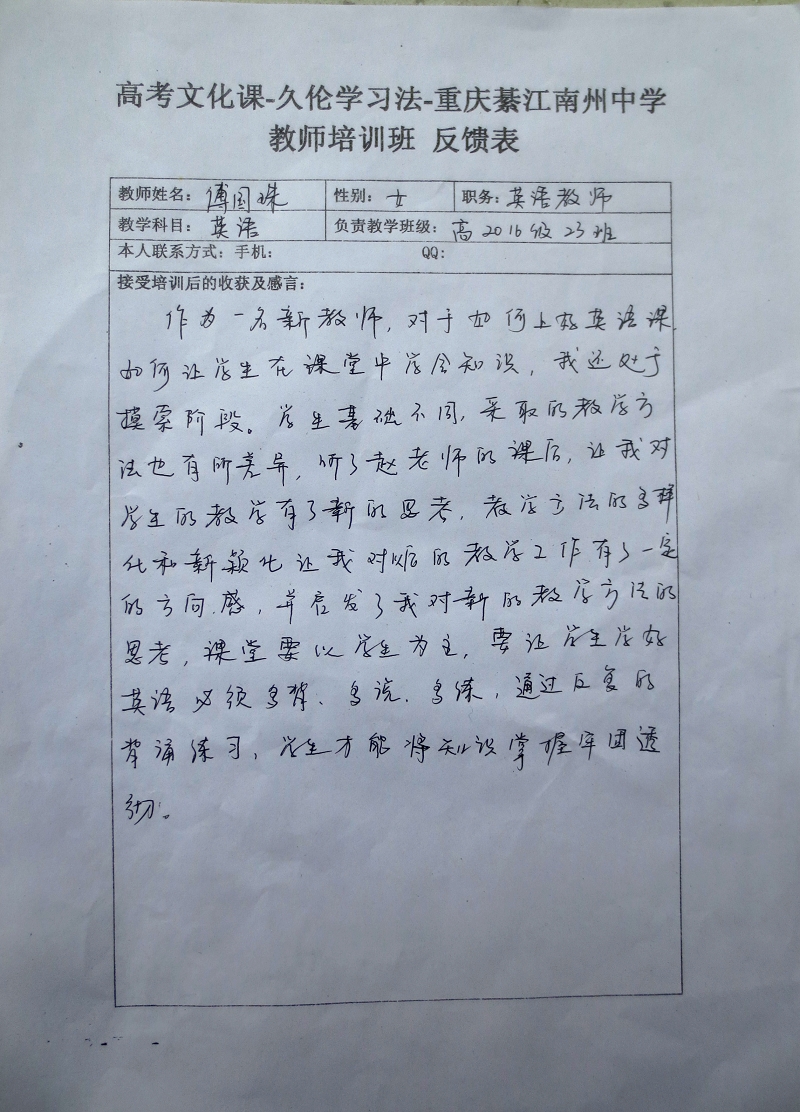 高考文化课-久伦学习法-重庆綦江南州中学
教师培训班 反馈表
教师姓名：傅国珠 性别：女 职务：英语教师
教学科目：英语 负责教学班级：高2016级23班
本人联系方式：手机： QQ：
接受培训后的收获及感言：
作为一名新教师，对于如何上好英语课，
如何让学生在课堂中学会知识，我还处于
摸索阶段。学生基础不同，采取的教学方
法也有所差异，听了赵老师的课后，让我对
学生的教学有了新的思考，教学方法的多样
化和新颖化让我对以后的教学工作有了一定
的方向感，并启发了我对新的教学方法的
思考，课堂要以学生为主，要让学生学好
英语必须多背、多说、多练，通过反复的
背诵练习，学生才能将知识掌握牢固透
彻。